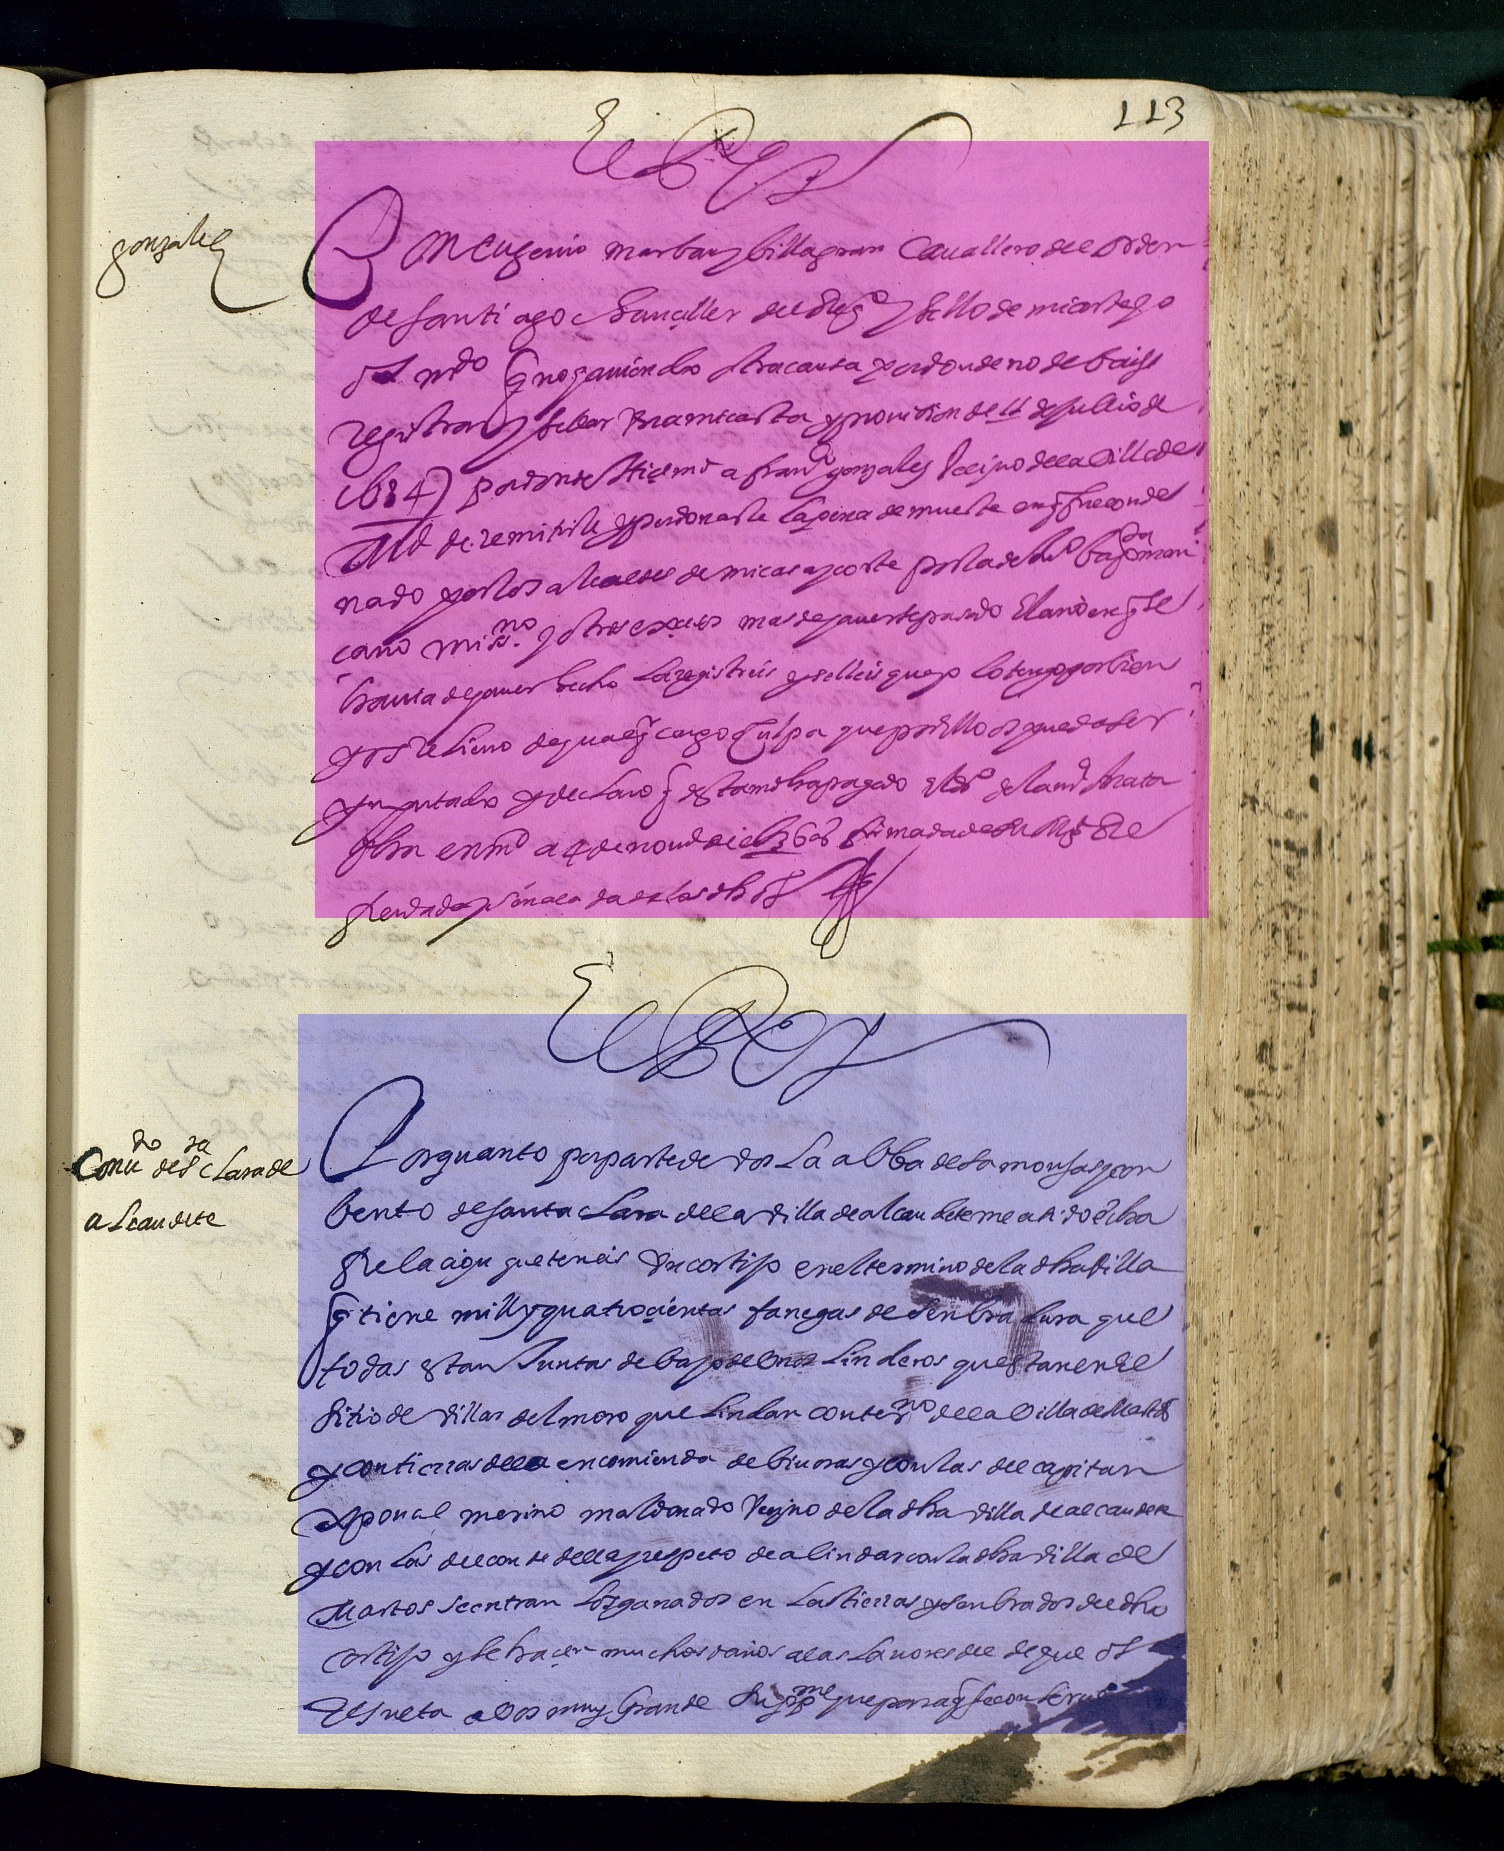 113
El Rey
gonzalez
Don Eugenio marban y billagran Cavallero del orden
de santiago chanciller del Reg.o y sello de mi corte yo
os m.do q no haviendo otra causa por donde no debais
registrar y sellar una mi carta y provision de 11 de jullio de
1684 por donde hice md a fran.co gonzales Vecino de la Villa de
Md de remitirle y perdonarle la pena de muerte en q fue conde
nado por los alcaldes de mi casa y corte por la de
cano y otros mas de haverse pasado el año en q se
havia de haver hecho la registreis y selleis que yo lo tengo por bien
y os relievo de qualq cargo o culpa que por ello os pueda ser
ynputado y declaro q desta md ha pagado el
fha en m.d a 4 de firmada de su Mg.d
El Rey
Conv.to de S.ta Clara de
alcaudete
Por quanto por parte de vos La abbadesa monjas y con
bento de santa clara de la villa de alcaudete me a sido fecha
Relaçion que teneis Un cortijo en el termino de la dha villa
q tiene mill y quatrocientas fanegas de senbradura que
todas estan Juntas debajo de Unos Linderos que estan en el
sitio de villar del moro que lindan con ter.no de la Villa de Martos
y con tierras de la encomienda de bivoras y con las del capitan
merino maldonado Vecino de la dha villa de alcaudete
y con las del conde della y respeto de alindar con la dha villa de
Martos se entran los ganados en las tierras y senbrados del dho
cortijo y se hacen muchos daños a las lavores del de que os
Resulta daños muy grande sup.me que para q se